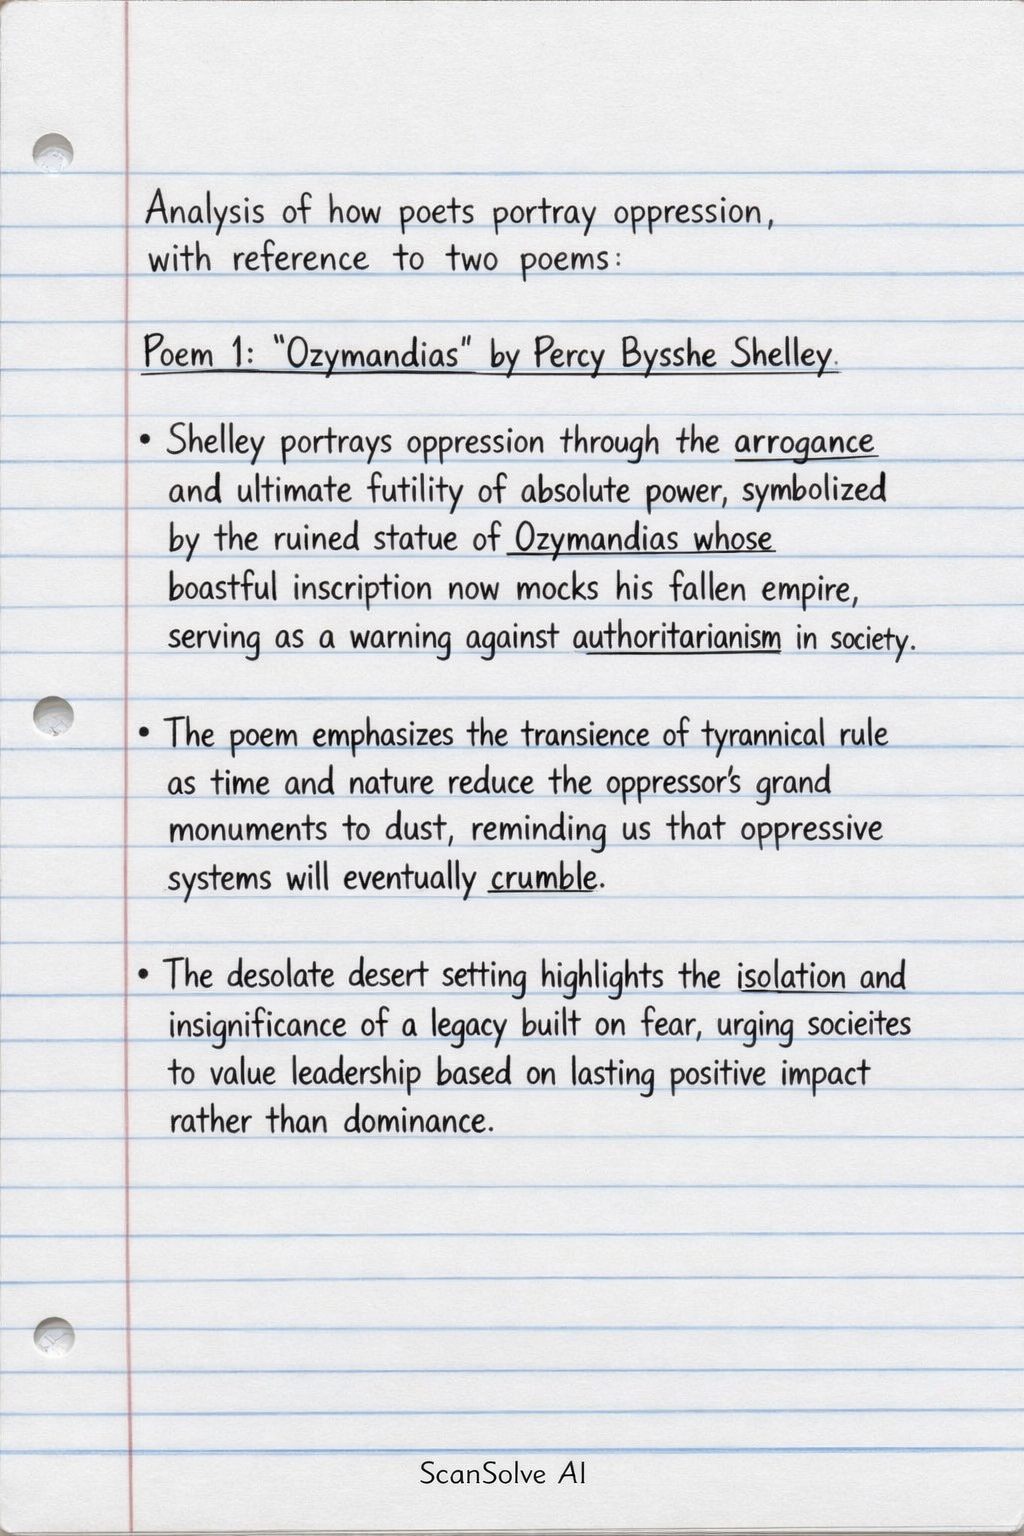 Analysis of how poets portray oppression,
with reference to two poems:
Poem 1: "Ozymandias" by Percy Bysshe Shelley.
• Shelley portrays oppression through the arrogance
and ultimate futility of absolute power, symbolized
by the ruined statue of Ozymandias whose
boastful inscription now mocks his fallen empire,
serving as a warning against authoritarianism in society.
• The poem emphasizes the transience of tyrannical rule
as time and nature reduce the oppressor's grand
monuments to dust, reminding us that oppressive
systems will eventually crumble.
• The desolate desert setting highlights the isolation and
insignificance of a legacy built on fear, urging socieites
to value leadership based on lasting positive impact
rather than dominance.
ScanSolve AI